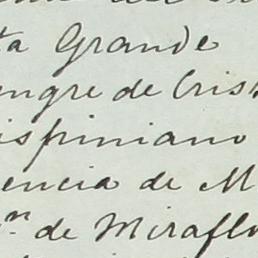 ta Grande
ngre de Cris
ispiniano
encia de M
n de Miraflo